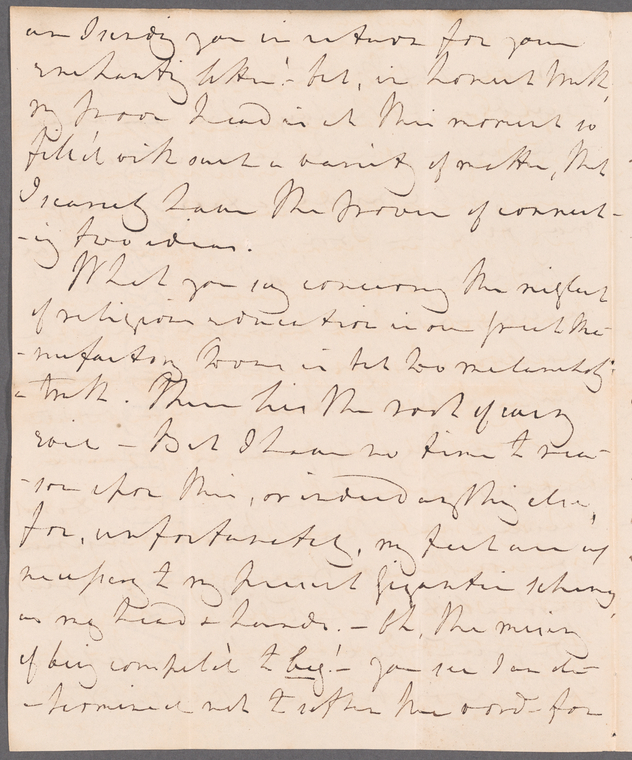 am I sending you in return for your
enchanting letter! - but, in honest truth,
my poor head is at this moment so
fill'd with such a variety of matter, that
I scarcely have the power of connect-
-ing two ideas.
What you say concerning the neglect
of religious education in our great ma-
-nufacturing towns is but too melancholy
truth. There lies the root of every
evil - But I have no time to rea-
-son upon this, or indeed anything else,
for, unfortunately, my feet are as
necessary to my present gigantic scheme,
as my head & hands. - Oh, the misery
of being compell'd to beg! - you see I am de-
-termined not to soften the word - for